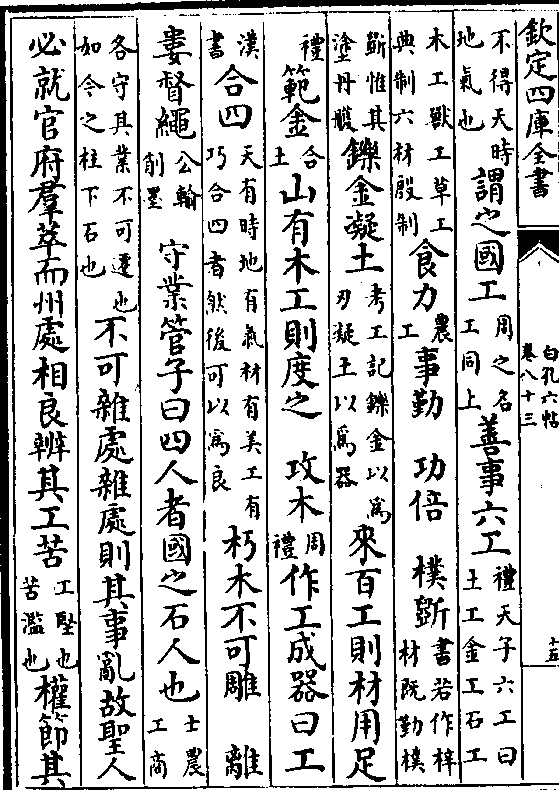 欽定四庫全書
白孔六帖
卷八十三
十五
不得天時地氣也謂之國工周之名工同上善事六工禮天子六工曰土工金工石工
木工獸工草工典制六材殷制食力農工事勤 功倍 樸斲書若作梓材既勤樸
斲惟其塗丹雘鑠金凝土考工記鑠金以爲刃凝土以爲器來百工則材用足
禮範金合土山有木工則度之 攻木周禮作工成器曰工
漢書合四天有時地有氣材有美工有巧合四者然後可以爲良朽木不可雕 離
婁督繩公輸削墨 守業管子曰四人者國之石人也士農工商
各守其業不可遷也如今之柱下石也不可雜處雜處則其事亂故聖人
必就官府羣萃而州處相良辨其工苦工堅也苦濫也權節其